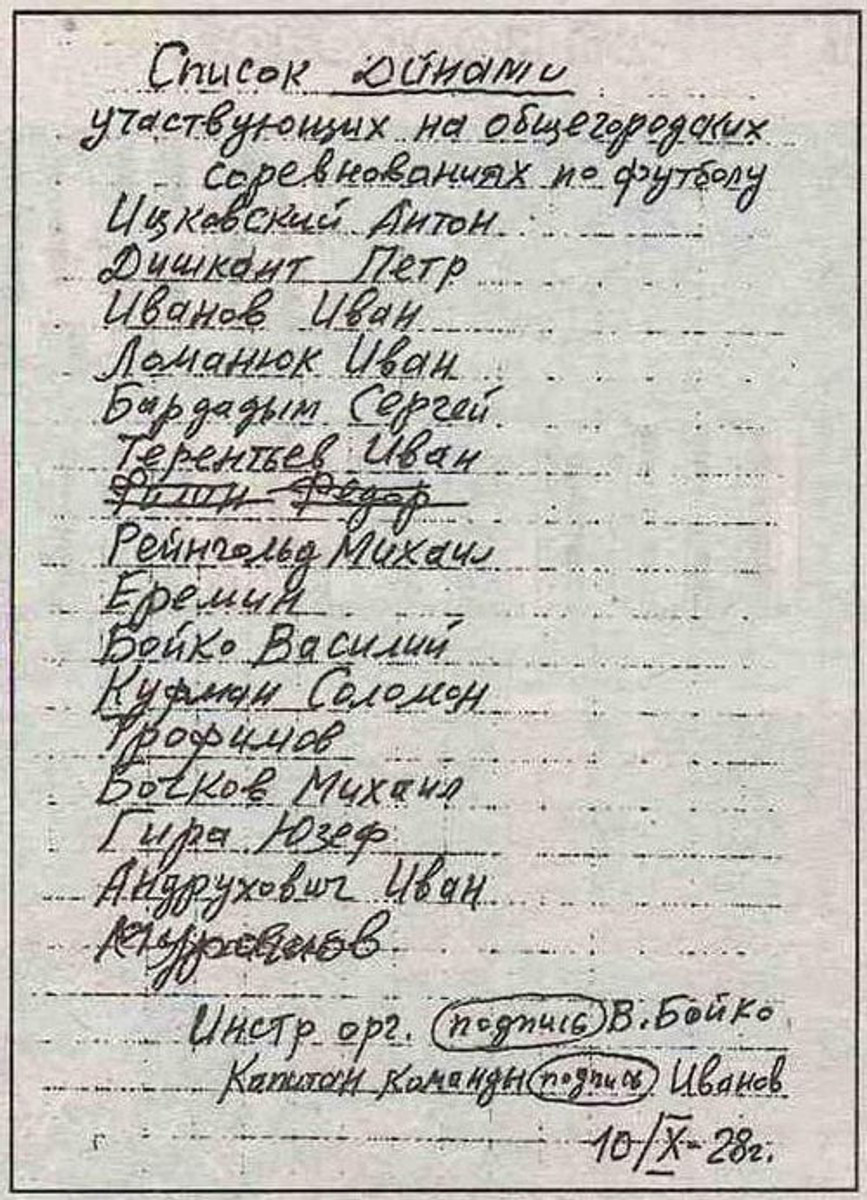 Список Дінати
участвующих на общегородских
соревнованиях по футболу
Ицковский Антон
Дишкант Петр
Иванов Иван
Ломанюк Иван
Бардадым Сергей
Терентьев Иван
Филин Федор
Рейнгольд Михаил
Еремин
Бойко Василий
Куфман Соломон
Трофимов
Бочков Михаил
Гира Юзеф
Андрухович Иван
Инстр орг. (подпись) В. Бойко
Капитан команды (подпись) Иванов
10/X-28г.